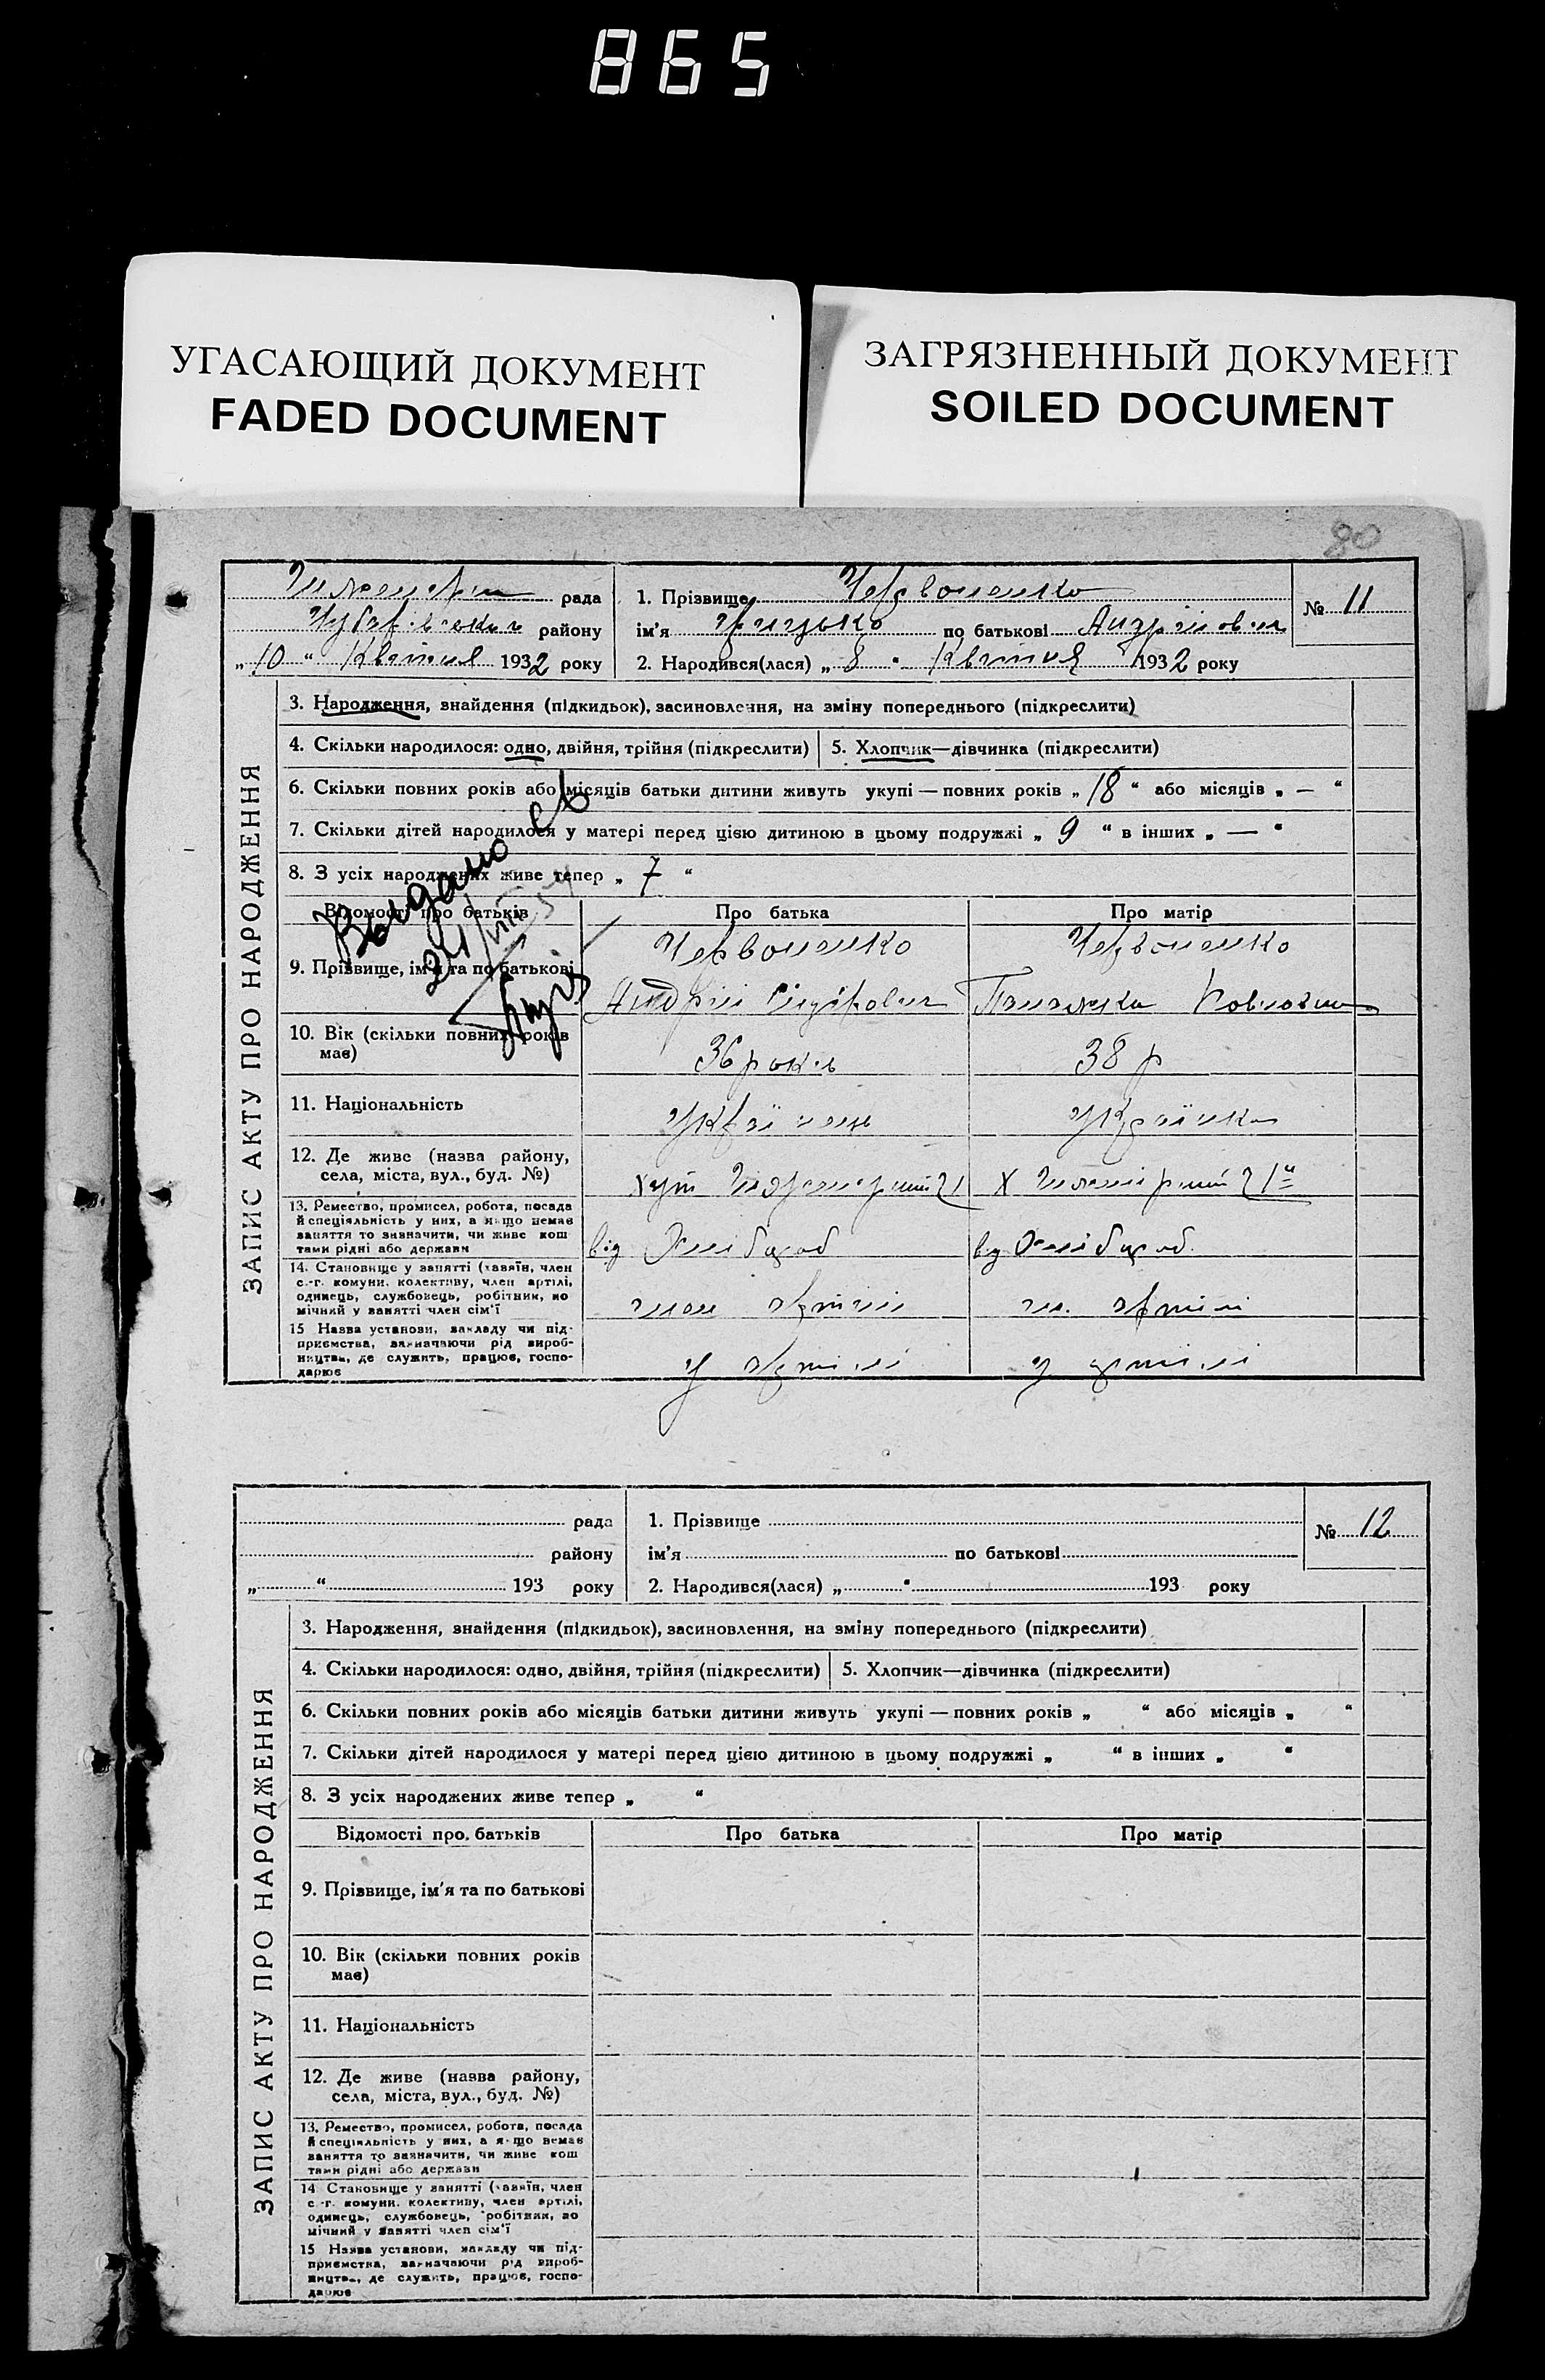 865
УГАСАЮЩИЙ ДОКУМЕНТ
FADED DOCUMENT
ЗАГРЯЗНЕННЫЙ ДОКУМЕНТ
SOILED DOCUMENT
80
рада
району
„10“ Квітня 1932 року
1. Прізвище Червоненко
ім'я Грицько по батькові Андрійович
2. Народився(лася) „8“ Квітня 1932 року
№ 11
ЗАПИС АКТУ ПРО НАРОДЖЕННЯ
3. Народження, знайдення (підкидьок), засиновлення, на зміну попереднього (підкреслити)
4. Скільки народилося: одно, двійня, трійня (підкреслити)
5. Хлопчик—дівчинка (підкреслити)
6. Скільки повних років або місяців батьки дитини живуть укупі — повних років „18“ або місяців „—“
7. Скільки дітей народилося у матері перед цією дитиною в цьому подружжі „9“ в інших „—“
8. З усіх народжених живе тепер „7“
Выдано св
24/VIII
Відомості про батьків
Про батька
Про матір
9. Прізвище, ім'я та по батькові
Червоненко
Андрій
Червоненко
10. Вік (скільки повних років має)
36 років
38 р
11. Національність
Українець
Українка
12. Де живе (назва району, села, міста, вул., буд. №)
хут
х
13. Ремество, промисел, робота, посада
й спеціяльність у них, а якщо немає
заняття то зазначити, чи живе кош
тами рідні або держави
від Хлібороб
від Хлібороб
14. Становище у занятті (хазяїн, член
с.-г. комуни, колективу, член артілі,
одинець, службовець, робітник, по
мічний у занятті член сім'ї
член артіли
чл. артілі
15 Назва установи, закладу чи під-
приємства, зазначаючи рід вироб-
ництва, де служить, працює, госпо-
дарює
у артілі
у артілі
рада
району
„ “ 193 року
1. Прізвище
ім'я по батькові
2. Народився(лася) „ “ 193 року
№ 12
ЗАПИС АКТУ ПРО НАРОДЖЕННЯ
3. Народження, знайдення (підкидьок), засиновлення, на зміну попереднього (підкреслити)
4. Скільки народилося: одно, двійня, трійня (підкреслити)
5. Хлопчик—дівчинка (підкреслити)
6. Скільки повних років або місяців батьки дитини живуть укупі — повних років „ “ або місяців „ “
7. Скільки дітей народилося у матері перед цією дитиною в цьому подружжі „ “ в інших „ “
8. З усіх народжених живе тепер „ “
Відомості про батьків
Про батька
Про матір
9. Прізвище, ім'я та по батькові
10. Вік (скільки повних років
має)
11. Національність
12. Де живе (назва району,
села, міста, вул., буд. №)
13. Ремество, промисел, робота, посада
й спеціяльність у них, а якщо немає
заняття то зазначити, чи живе кош
тами рідні або держави
14 Становище у занятті (хазяїн, член
с.-г. комуни, колективу, член артілі,
одинець, службовець, робітник, по
мічний у занятті член сім'ї
15 Назва установи, закладу чи під-
приємства, зазначаючи рід вироб-
ництва, де служить, працює, госпо-
дарює